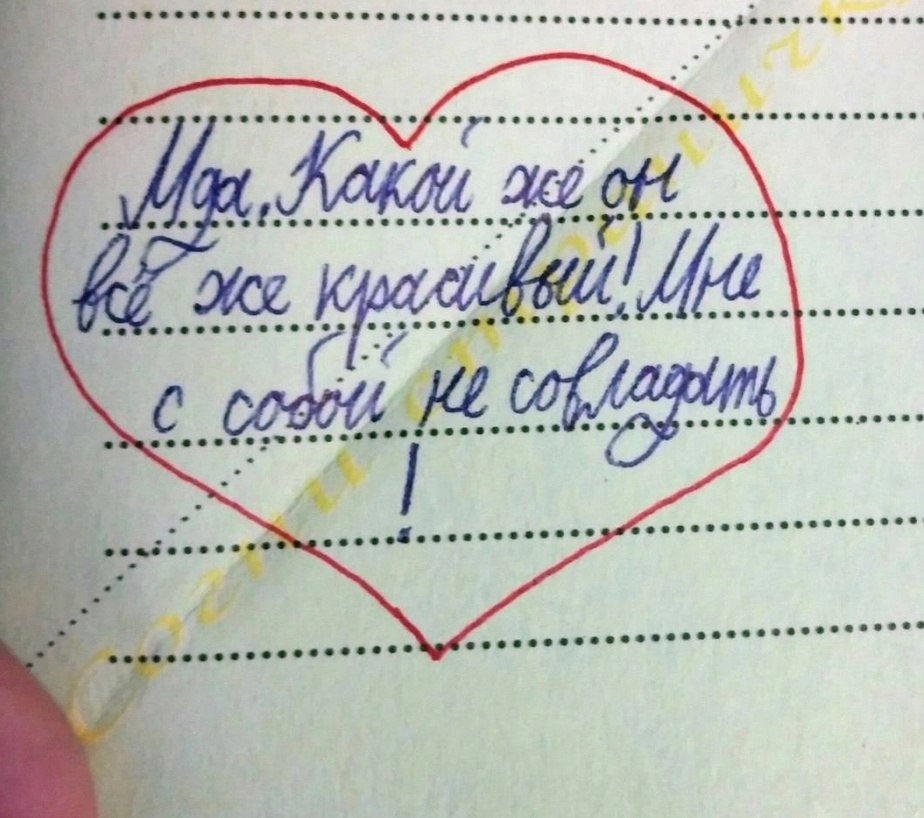 Мда. Какой же он
всё же красивый! Мне
с собой не совладать
!
Согни страничку